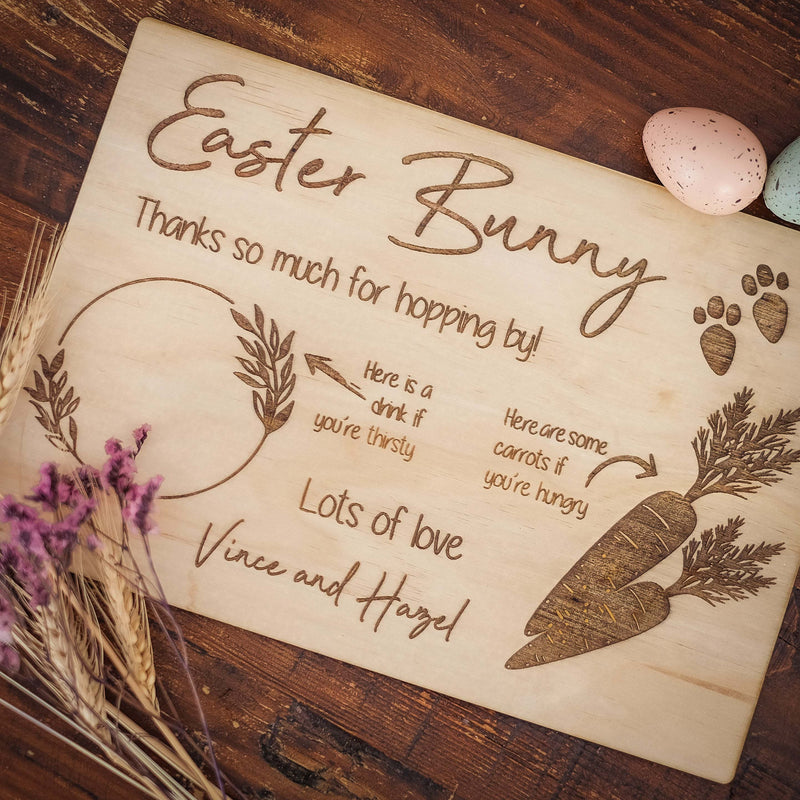 Easter Bunny
Thanks so much for hopping by!
Here is a
drink if
you're thirsty
Here are some
carrots if
you're hungry
Lots of love
Vince and Hazel